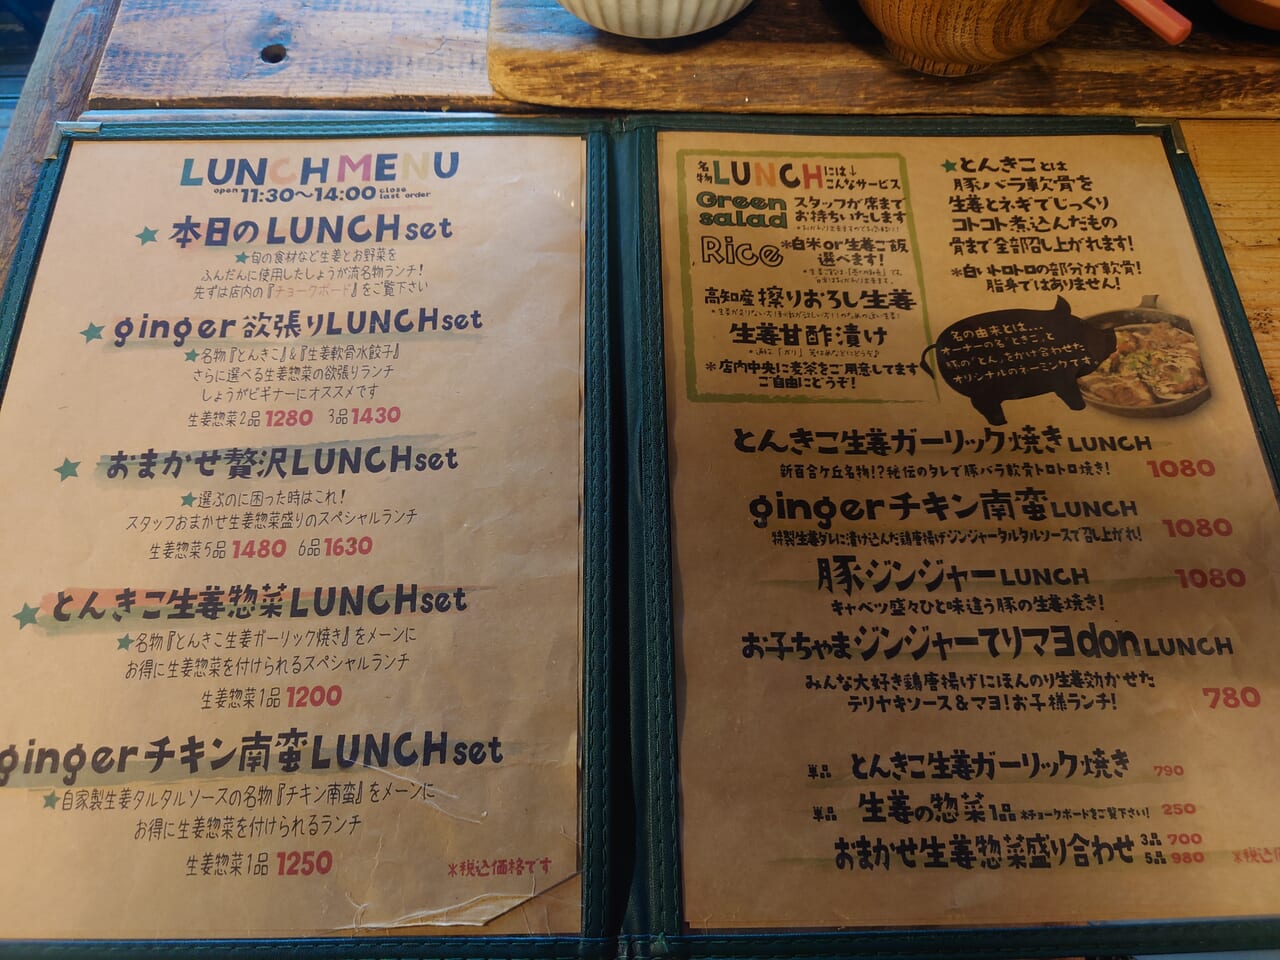 LUNCH MENU
open 11:30～14:00 close last order
★本日のLUNCH set
★旬の食材など生姜とお野菜を
ふんだんに使用したしょうが流名物ランチ!
先ずは店内の『チョークボード』をご覧下さい
★ginger欲張りLUNCH set
★名物『とんきこ』&『生姜軟骨水餃子』
さらに選べる生姜惣菜の欲張りランチ
しょうがビギナーにオススメです
生姜惣菜2品 1280 3品 1430
★おまかせ贅沢LUNCH set
★選ぶのに困った時はこれ!
スタッフおまかせ生姜惣菜盛りのスペシャルランチ
生姜惣菜5品 1480 6品 1630
★とんきこ生姜惣菜LUNCH set
★名物『とんきこ生姜ガーリック焼き』をメーンに
お得に生姜惣菜を付けられるスペシャルランチ
生姜惣菜1品 1200
gingerチキン南蛮LUNCH set
★自家製生姜タルタルソースの名物『チキン南蛮』をメーンに
お得に生姜惣菜を付けられるランチ
生姜惣菜1品 1250
※税込価格です
名物LUNCHには↓こんなサービス
Green salad スタッフが席までお持ちいたします
Rice ※白米or生姜ご飯選べます!
高知産擦りおろし生姜
生姜甘酢漬け
※店内中央に麦茶をご用意してます
ご自由にどうぞ!
★とんきことは
豚バラ軟骨を
生姜とネギでじっくり
コトコト煮込んだもの
骨まで全部召し上がれます!
※白いトロトロの部分が軟骨!
脂身ではありません!
名の由来とは...
オーナーの名"ときこ"と
豚の"とん"をかけ合わせた
オリジナルのネーミングです
とんきこ生姜ガーリック焼きLUNCH
新百合ケ丘名物!?秘伝のタレで豚バラ軟骨トロトロ焼き! 1080
gingerチキン南蛮LUNCH
特製生姜ダレに漬け込んだ鶏唐揚げジンジャータルタルソースで召し上がれ! 1080
豚ジンジャーLUNCH 1080
キャベツ盛々ひと味違う豚の生姜焼き!
お子ちゃまジンジャーてりマヨdon LUNCH
みんな大好き鶏唐揚げにほんのり生姜効かせた
テリヤキソース&マヨ!お子様ランチ! 780
単品 とんきこ生姜ガーリック焼き 790
単品 生姜の惣菜1品 ※チョークボードをご覧下さい! 250
おまかせ生姜惣菜盛り合わせ 3品 700
5品 980
※税込